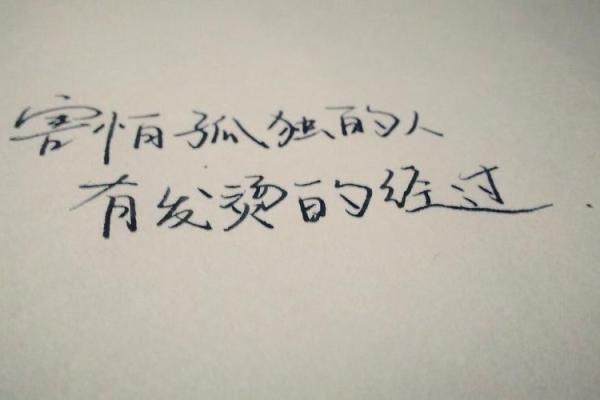 害怕孤独的人
有发烫的经过.